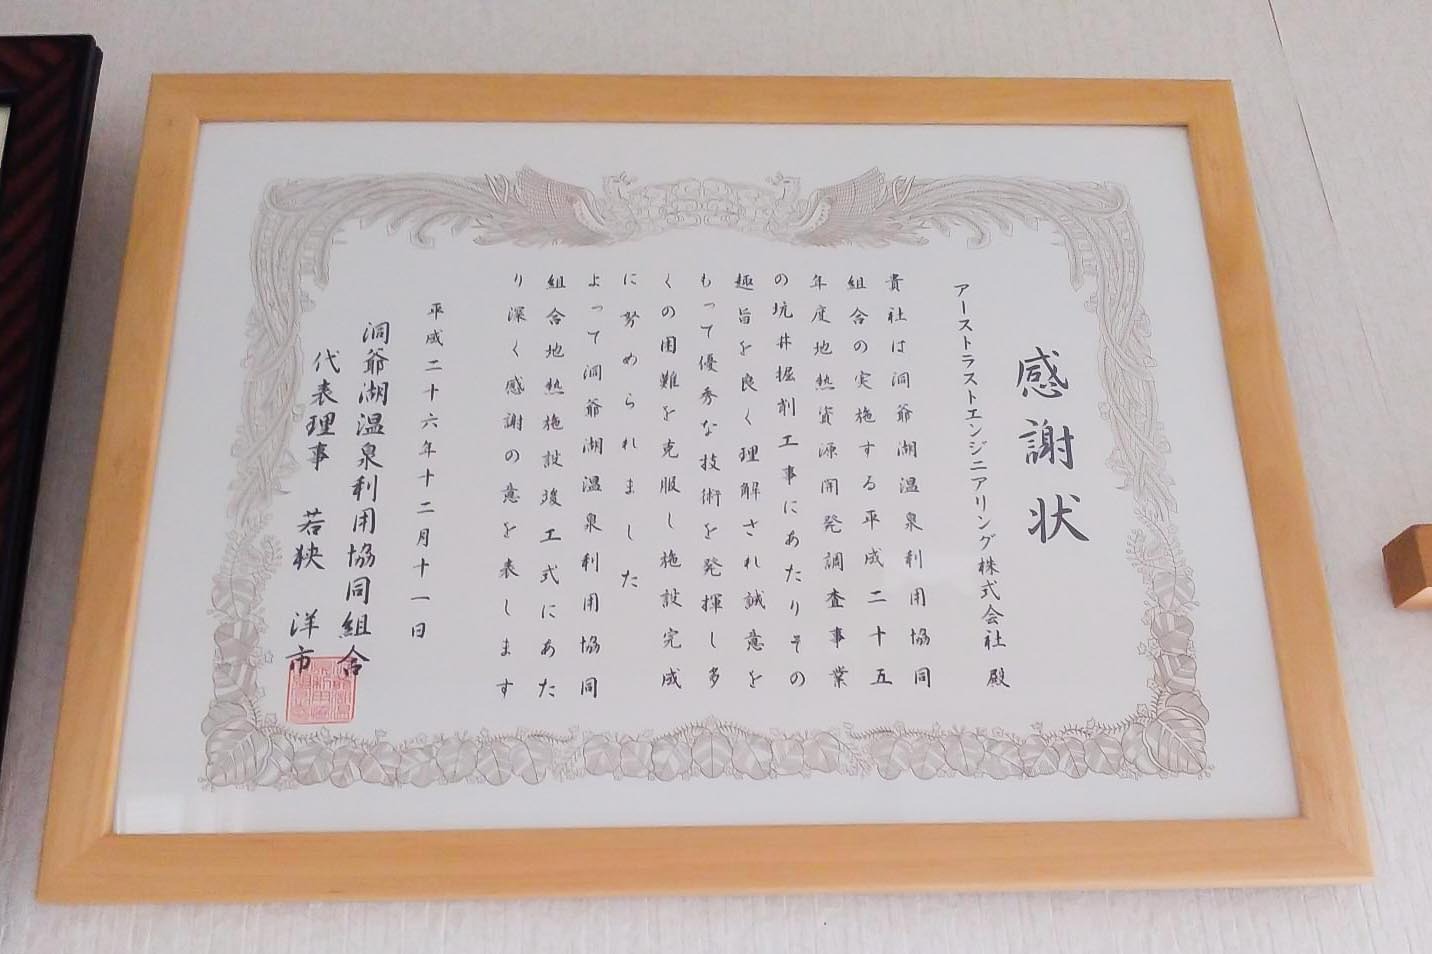 感謝状
アーストラストエンジニアリング株式会社 殿
貴社は洞爺湖温泉利用協同
組合の実施する平成二十五
年度地熱資源開発調査事業
の坑井掘削工事にあたりその
趣旨を良く理解され誠意を
もって優秀な技術を発揮し多
くの困難を克服し施設完成
に努められました
よって洞爺湖温泉利用協同
組合地熱施設竣工式にあた
り深く感謝の意を表します
平成二十六年十二月十一日
洞爺湖温泉利用協同組合
代表理事 若狹 洋市